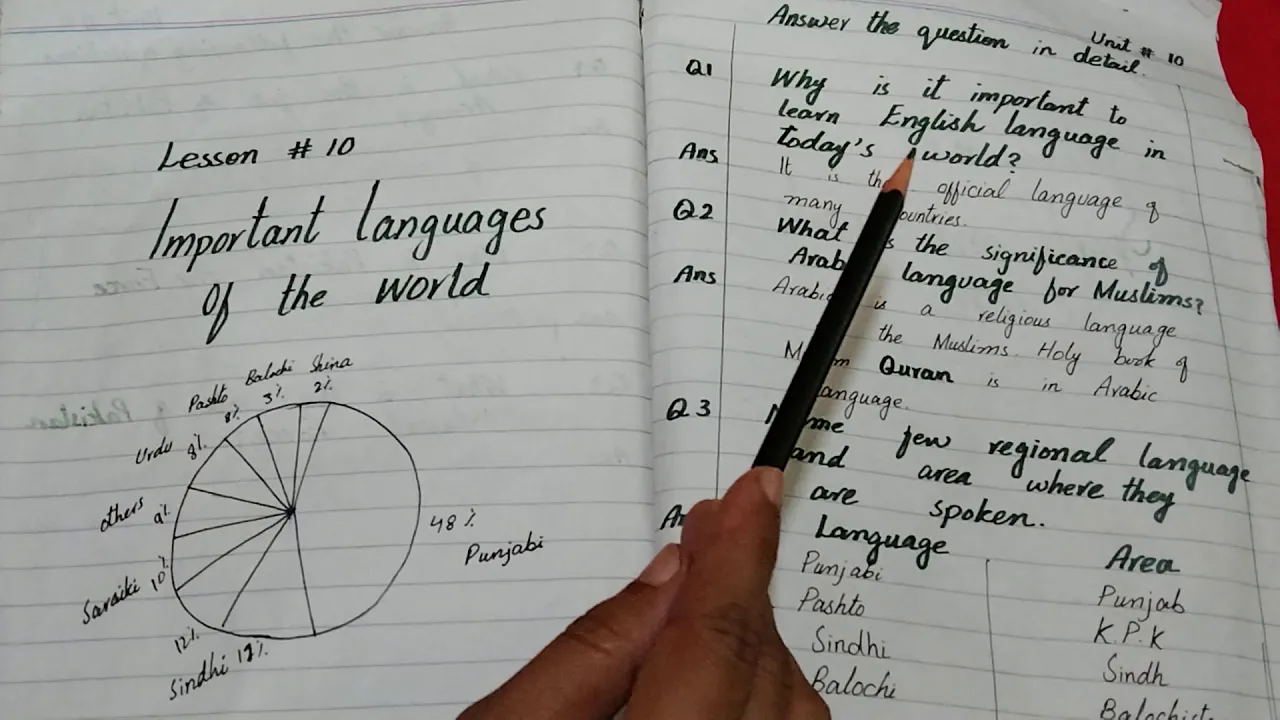 Lesson # 10
Important languages
of the world
Balochi Shina
3% 2%
Pashto
8%
Urdu
8%
Others
9%
Saraiki 10%
12%
Sindhi 12%
48%
Punjabi
Unit # 10
Answer the question in detail.
Q1 Why is it important to
learn English language in
today's world?
Ans It is the official language of
many countries.
Q2 What is the significance of
Arab language for Muslims?
Ans Arabic is a religious language
the Muslims. Holy book of
Quran is in Arabic
language.
Q3 Name few regional language
and area where they
are spoken.
Language Area
Punjabi Punjab
Pashto K.P.K
Sindhi Sindh
Balochi